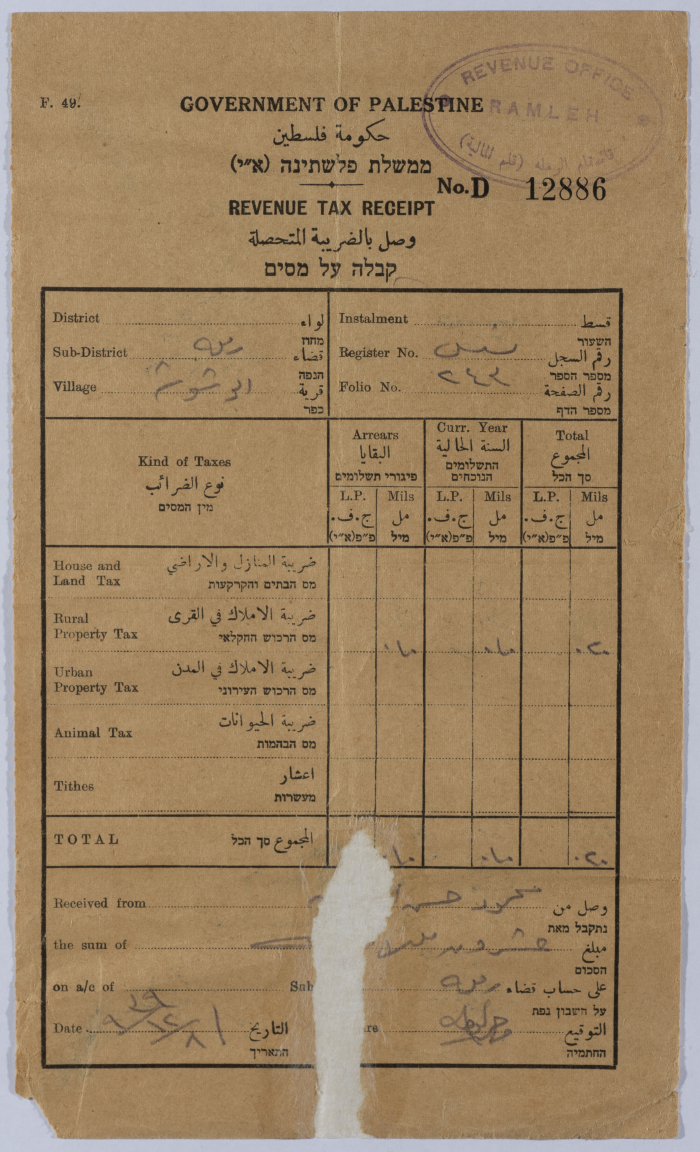 REVENUE OFFICE
RAMLEH
F. 49.
GOVERNMENT OF PALESTINE
حكومة فلسطين
ממשלת פלשתינה (א״י)
No. D 12886
REVENUE TAX RECEIPT
وصل بالضريبة المتحصلة
קבלה על מסים
District لواء
מחוז
Sub-District رمله قضاء
הנפה
Village قرية
כפר
Instalment قسط
השעור
Register No. رقم السجل
מספר הספר
Folio No. ٢٤٣ رقم الصفحة
מספר הדף
Kind of Taxes
نوع الضرائب
מין המסים
Arrears
البقايا
פיגורי תשלומים
Curr. Year
السنة الحالية
התשלומים
הנוכחים
Total
المجموع
סך הכל
L.P. Mils L.P. Mils L.P. Mils
ج.ف. مل ج.ف. مل ج.ف. مل
פ״פ(א״י) מיל פ״פ(א״י) מיל פ״פ(א״י) מיל
House and ضريبة المنازل والاراضي
Land Tax מס הבתים והקרקעות
Rural ضريبة الاملاك في القرى
Property Tax מס הרכוש החקלאי
٠٢٠
Urban ضريبة الاملاك في المدن
Property Tax מס הרכוש העירוני
Animal Tax ضريبة الحيوانات
מס הבהמות
Tithes اعشار
מעשרות
TOTAL المجموع סך הכל
٠٢٠
Received from محمود حسن وصل من
נתקבל מאת
the sum of عشرون مبلغ
הסכום
on a/c of Sub رمله على حساب قضاء
על חשבון נפת
Date التاريخ
התאריך
re التوقيع
החתמיה